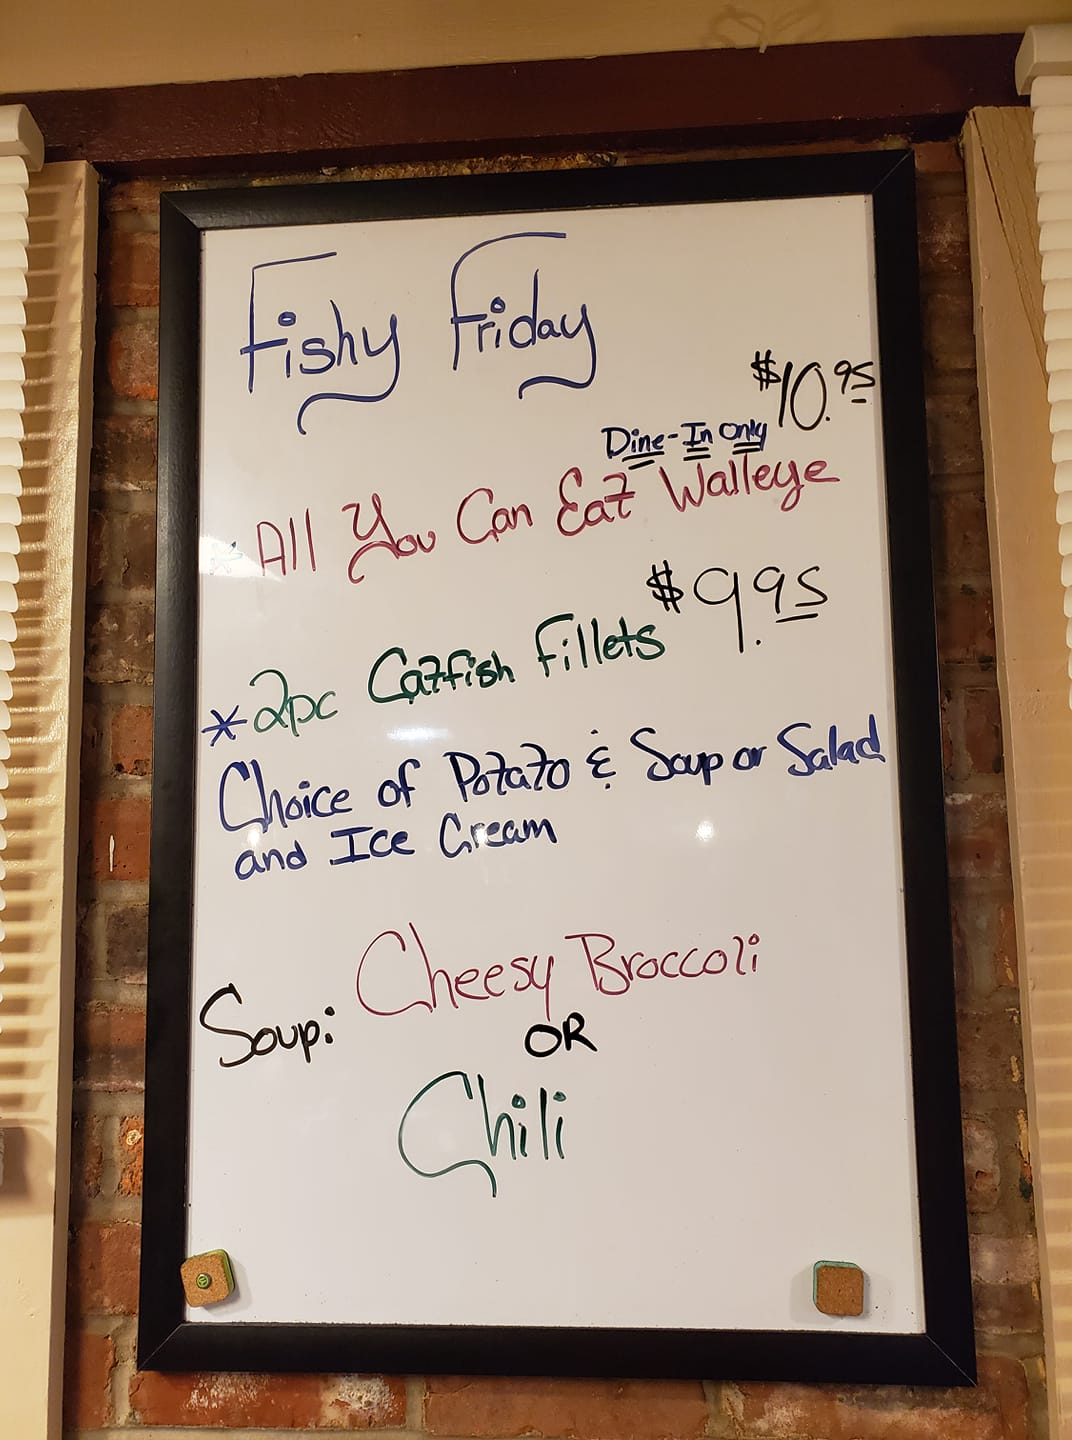 Fishy Friday
$10.95
Dine-In Only
* All You Can Eat Walleye
$9.95
* 2pc Catfish Fillets
Choice of Potato & Soup or Salad
and Ice Cream
Soup: Cheesy Broccoli
OR
Chili